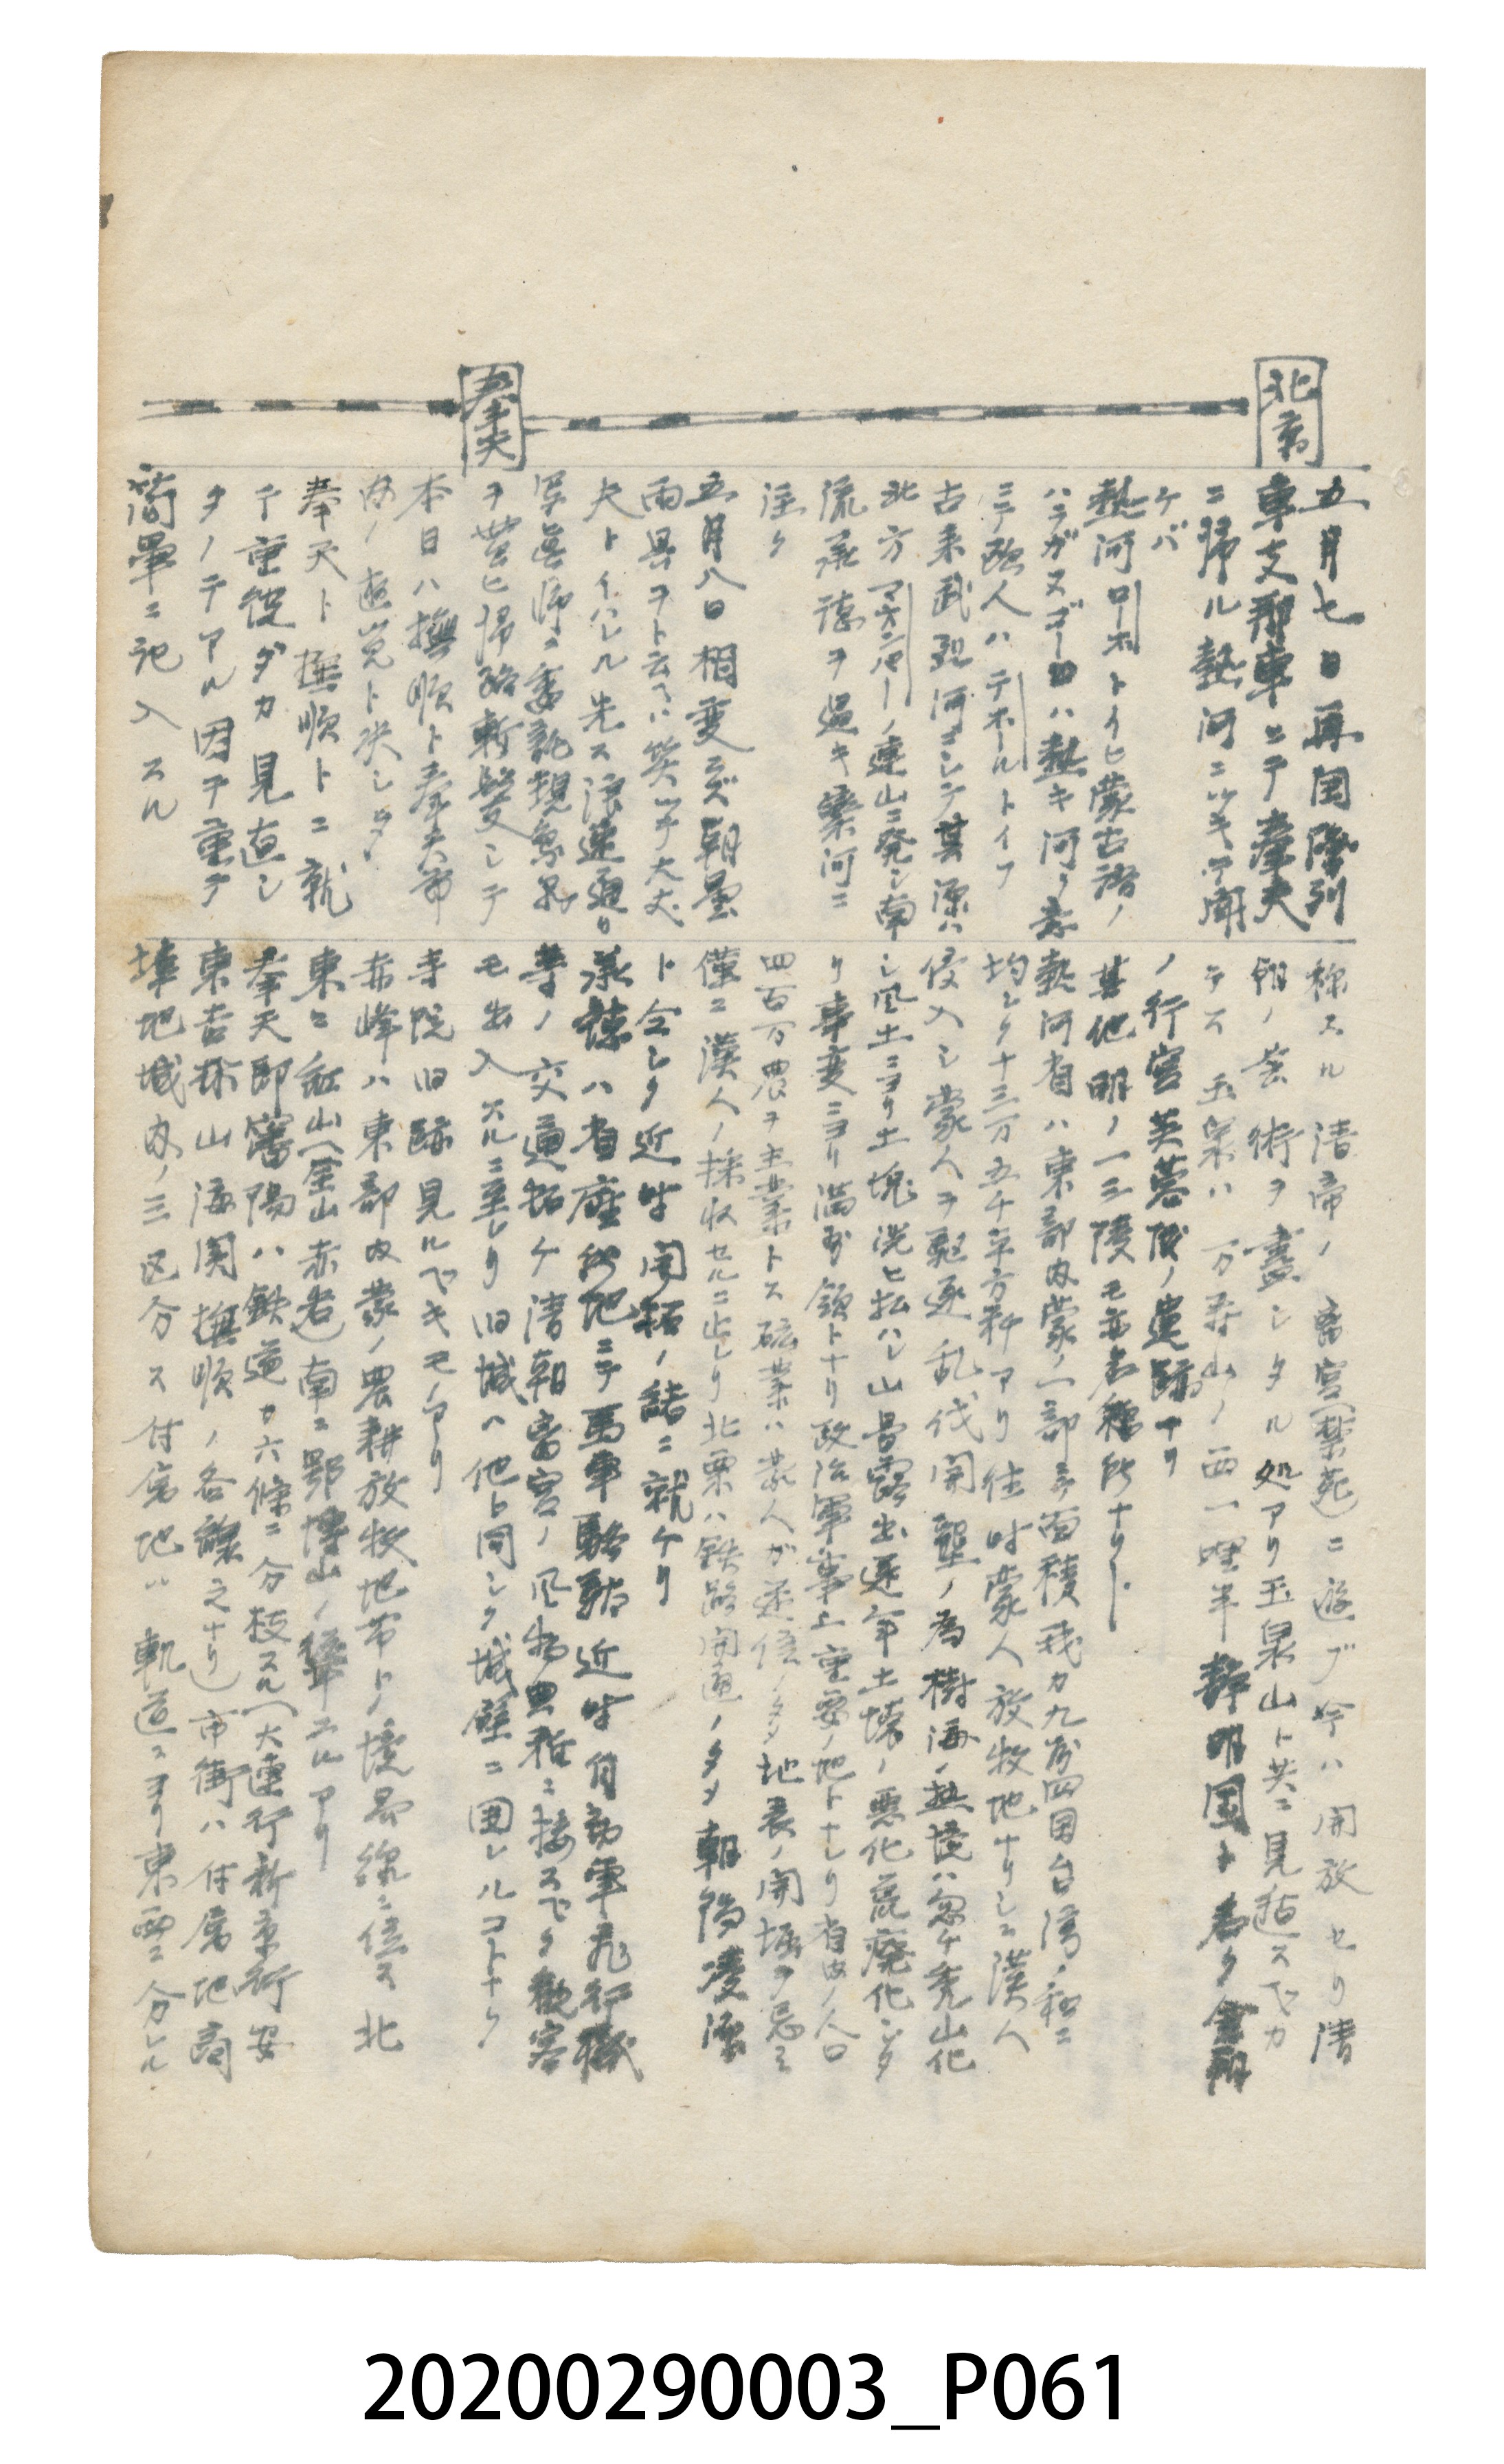 北京
奉天
五月七日再国際列
車支那車ニテ奉天
ニ帰ル熱河ニツキテ聞
ケバ
熱河ローホトイヒ蒙古語ノ
ハラガヌゴールハ熱キ河ノ意
ニテ欧人ハテホールトイフ
古来武烈河ニシテ其源ハ
北方マオンパーノ連山ニ発シ南
流承徳ヲ過キ灤河ニ
注ク
五月八日相変ラズ朝曇
雨具ヲト云ヘハ笑ツテ大丈
夫トイハレル先ス浪速通リ
写真師ニ委託現象
ヲ貰ヒ帰路斬髪シテ
本日ハ撫順ト奉天市
内ノ遊覧ト決シタ
奉天ト撫順トニ就
テ重複ダカ見直シ
タノデアル因テ重テ
簡単ニ記入スル
称スル清帝ノ畜宮(禁苑)ニ遊ブ今ハ開放セリ清
朝ノ芸術ヲ盡シタル処アリ玉泉山ト共ニ見逃スベカ
ラス玉泉ハ万寿山ノ西一哩半静明園ト名ク金朝
ノ行宮芙蓉殿ノ遺跡ナリ
其他明ノ十三陵モ亦名稱所ナリト
熱河省ハ東部内蒙ノ一部ニテ面積我カ九州四国台湾ノ和ニ
均シク十三万五千平方粁アリ往時蒙人放牧地ナリシニ漢人
侵入シ蒙人ヲ駆逐乱伐開墾ノ為樹海ノ熱境ハ忽チ禿山化
シ風土ニヨリ土塊洗ヒ払ハレ山骨露出逐年土壌ノ悪化荒廃化シタ
リ事変ニヨリ満州領トナリ政治軍事上重要ノ地トナレリ省内ノ人口
四百万農ヲ主業トス砿業ハ蒙人ガ迷信ノタメ地表ノ開掘ヲ忌ミ
僅ニ漢人ノ採収セルニ止レリ北票ハ鉄路開通ノタメ朝陽凌源
ト仝シク近時開拓ノ緒ニ就ケリ
承徳ハ省庁所在地ニテ馬車駱駝近時自動車飛行機
等ノ交通拓ケ清朝畜宮ノ風物豊雅ニ接スベク観客
モ出入スルニ至レリ旧城ハ他ト同シク城壁ニ囲レルコトナク
寺院旧跡見ルベキモノアリ
赤峰ハ東部内蒙ノ農耕放牧地帯トノ境界線ニ位ス北
東ニ紅山(全山赤岩)南ニ鄂博山ノ聳ユルアリ
奉天即瀋陽ハ鉄道カ六條ニ分枝スル(大連行新京行安
東吉林山海関撫順ノ各線之ナリ)市街ハ付属地商
埠地城内ノ三区分ス付属地ハ軌道ニヨリ東西ニ分レル
20200290003_P061